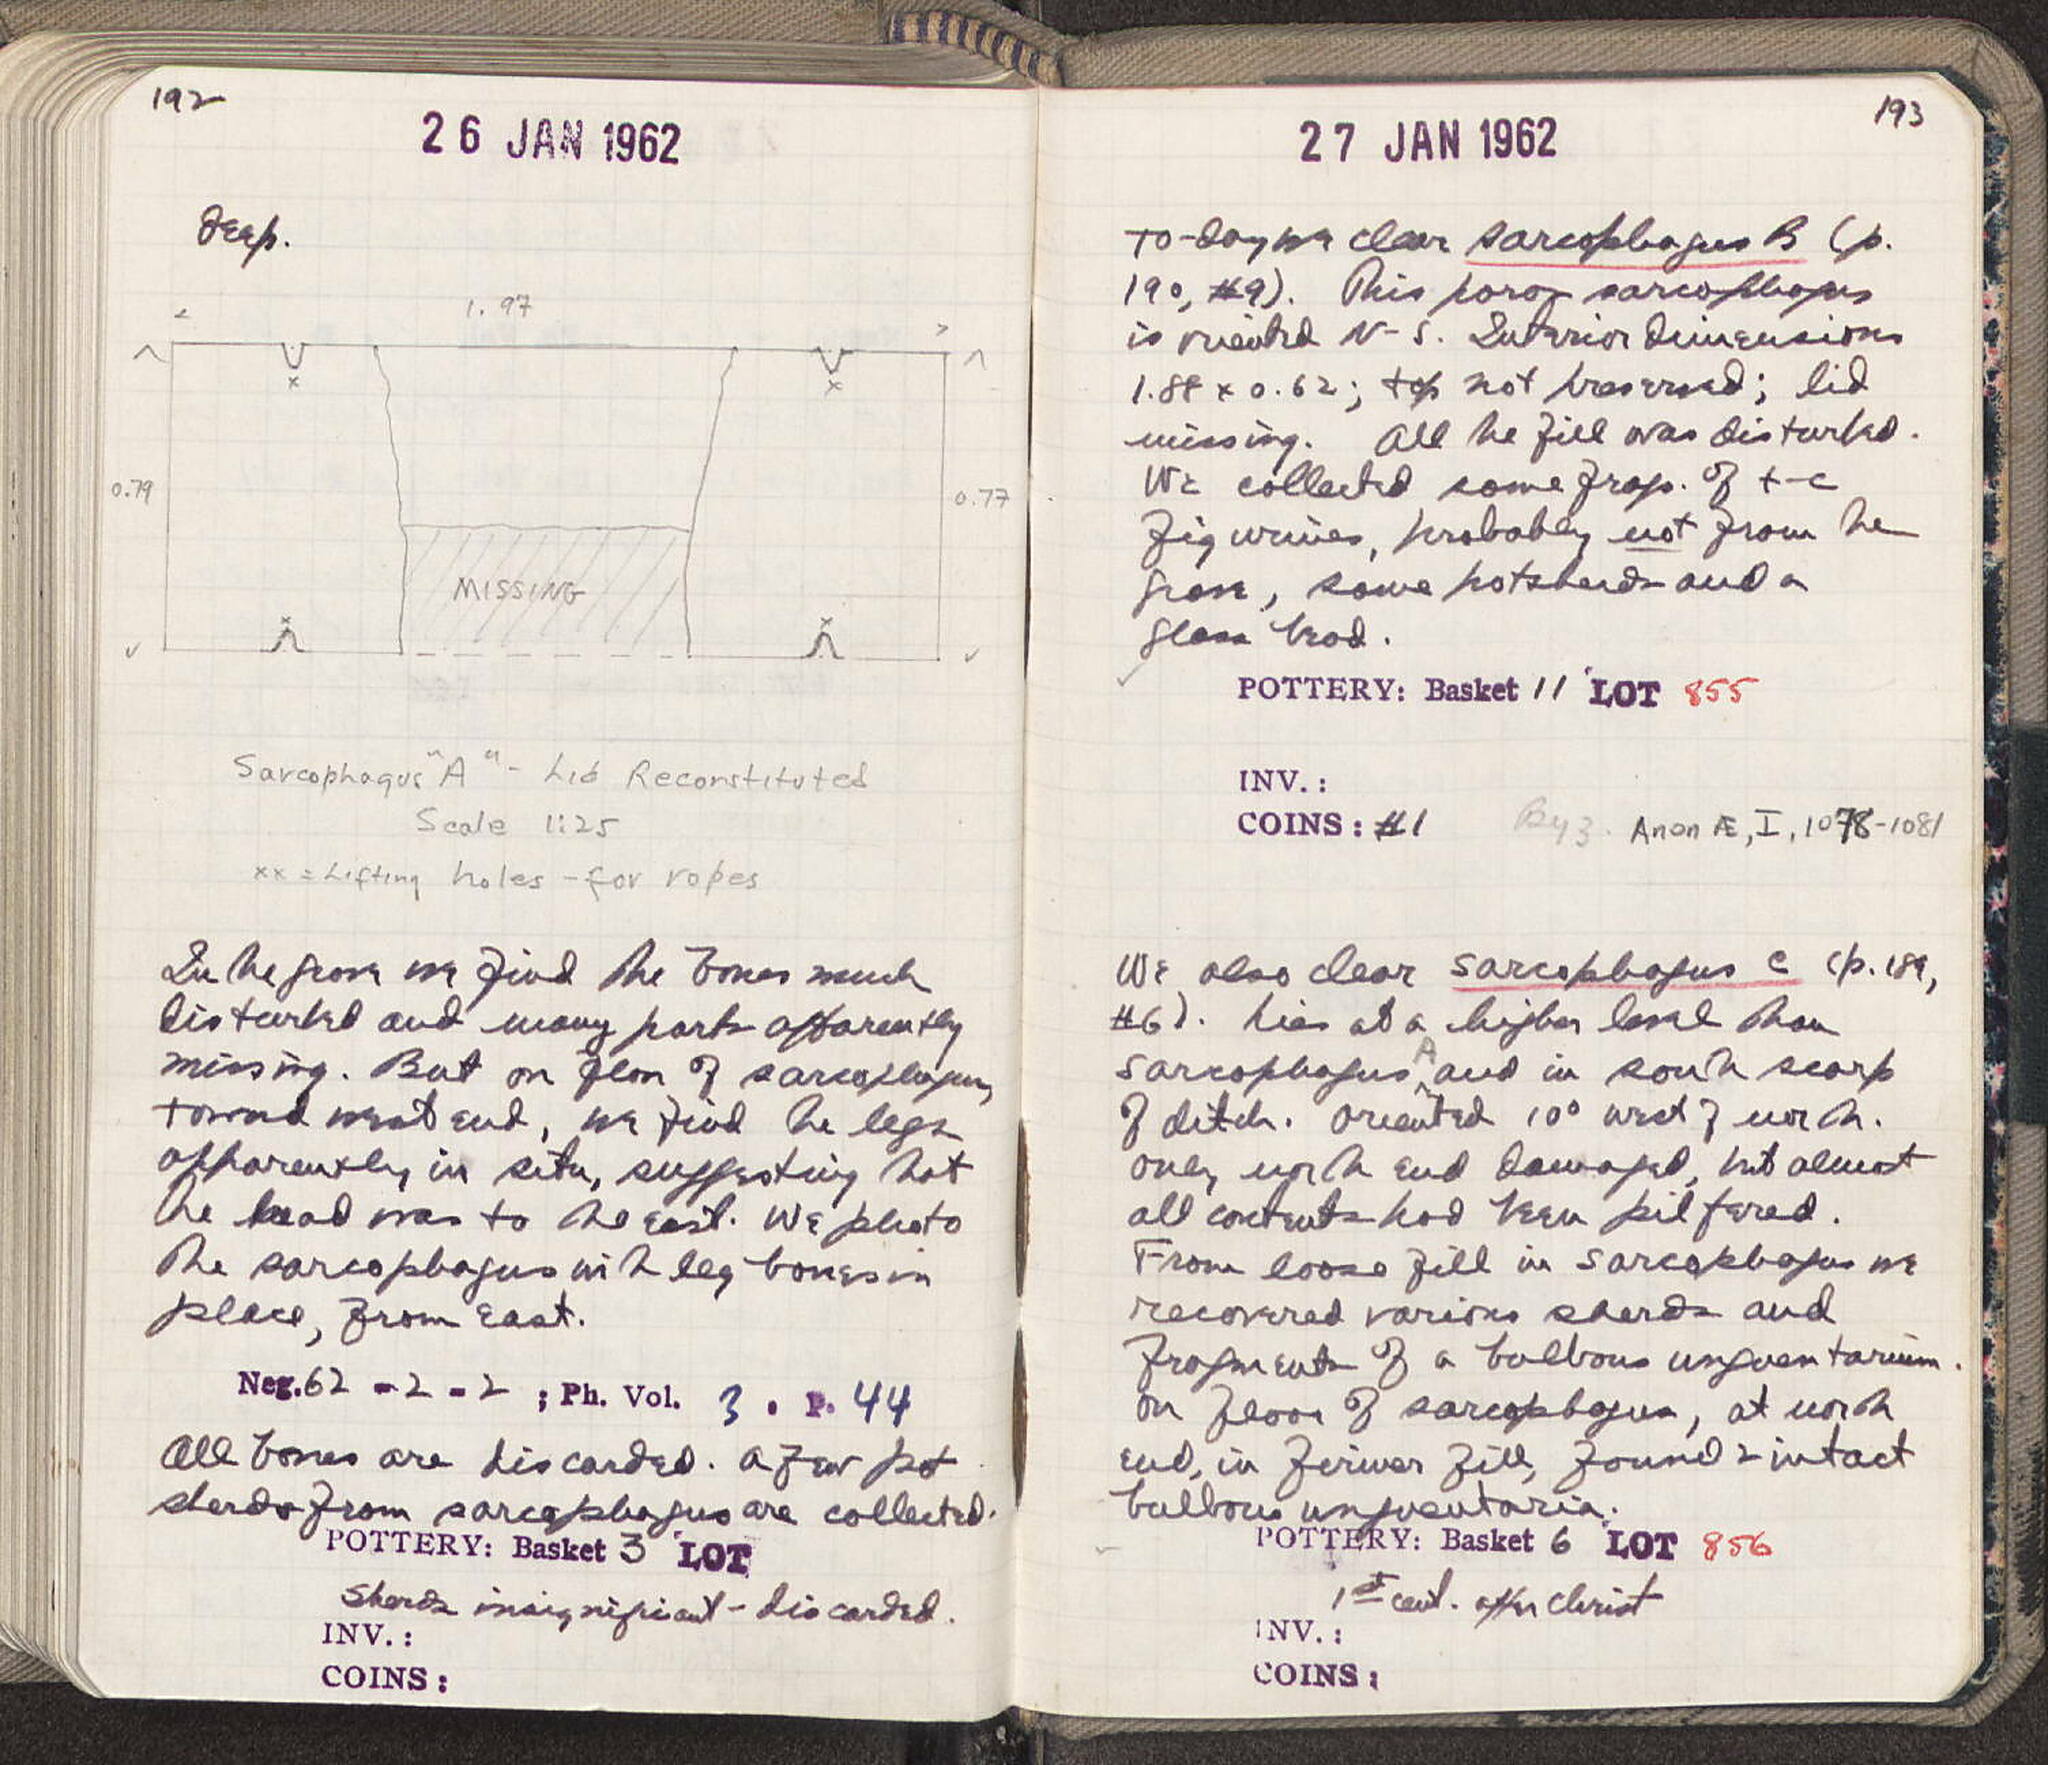 192
26 JAN 1962
deep.
1.97
0.79
0.77
x
x
MISSING
x
x
Sarcophagus "A" - Lid Reconstituted
Scale 1:25
xx = Lifting holes - for ropes
In the grave we find the bones much
disturbed and many parts apparently
missing. But on floor of sarcophagus,
toward west end, we find the legs
apparently in situ, suggesting that
the head was to the east. We photo
the sarcophagus with leg bones in
place, from east.
Neg. 62 - 2 - 2 ; Ph. Vol. 3 . P. 44
All bones are discarded. A few pot
sherds from sarcophagus are collected.
POTTERY: Basket 3 LOT
Sherds insignificant - discarded.
INV. :
COINS :
193
27 JAN 1962
To-day we clear sarcophagus B (p.
190, #9). This poros sarcophagus
is oriented N-S. Interior dimensions
1.88 x 0.62; top not preserved; lid
missing. All the fill was disturbed.
We collected some frag. of t-c
figurines, probably not from the
grave, some potsherds and a
glass bead.
POTTERY: Basket 11 LOT 855
INV. :
COINS : #1 Byz. Anon Æ, I, 1078-1081
We also clear sarcophagus C (p. 189,
#6). Lies at a higher level than
sarcophagus A and in south scarp
of ditch. Oriented 10° west of north.
Only north end damaged, but almost
all contents had been pilfered.
From loose fill in sarcophagus we
recovered various sherds and
fragments of a bulbous unguentarium.
On floor of sarcophagus, at north
end, in firmer fill, found 2 intact
bulbous unguentaria.
POTTERY: Basket 6 LOT 856
1st cent. after Christ
INV. :
COINS :